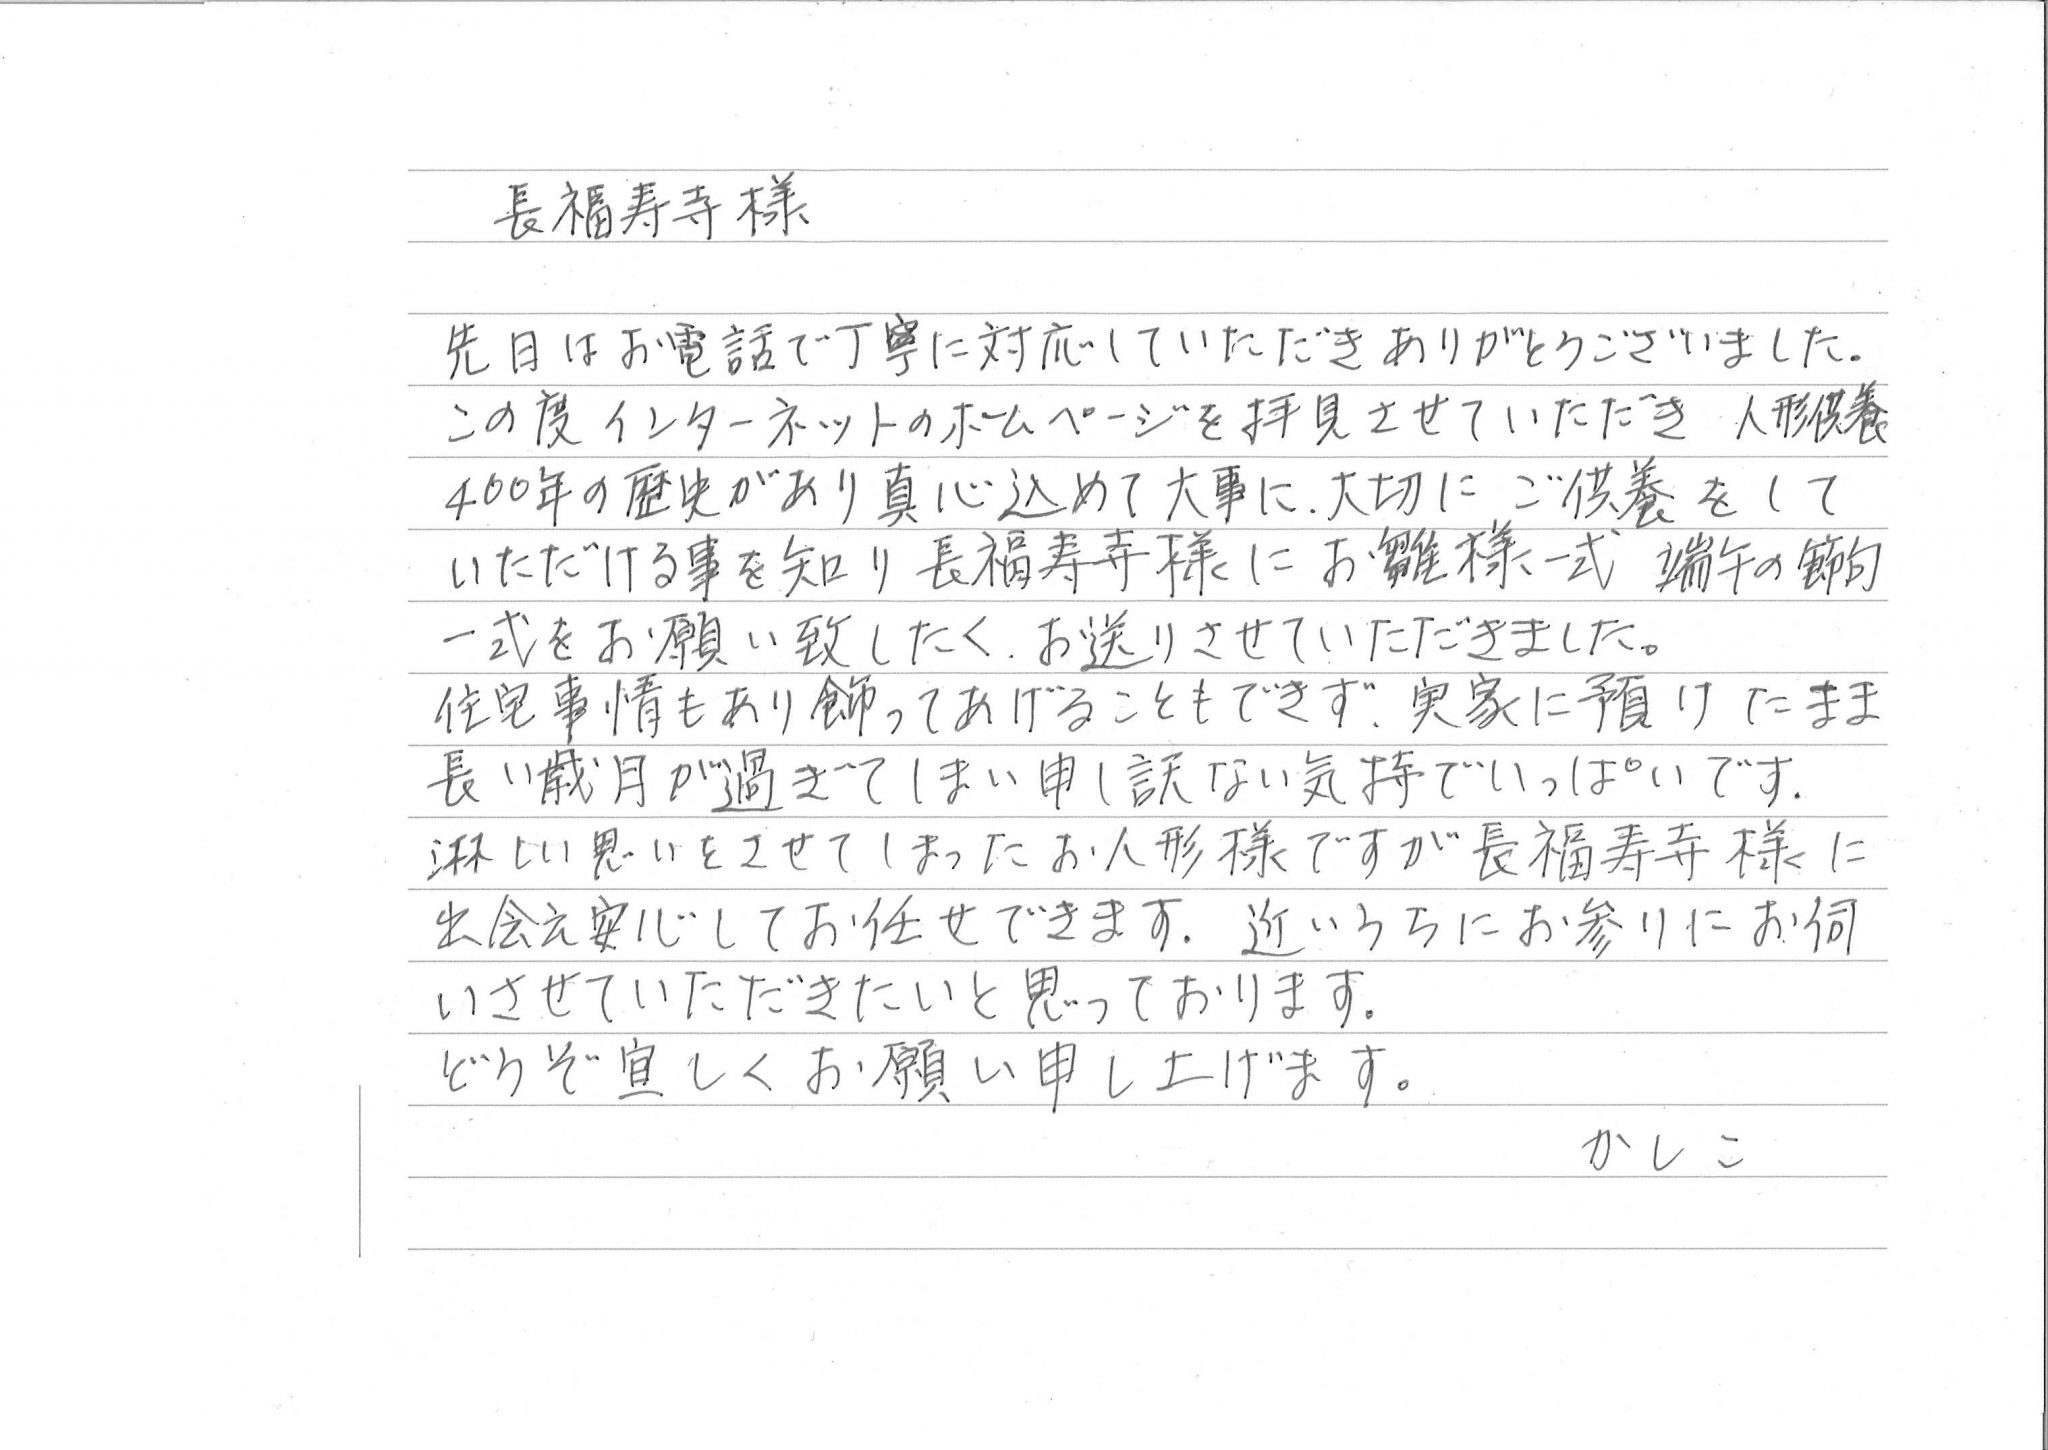 長福寿寺様
先日はお電話で丁寧に対応していただきありがとうございました。
この度インターネットのホームページを拝見させていただき 人形供養
400年の歴史があり真心込めて大事に、大切に ご供養をして
いただける事を知り 長福寿寺様に お雛様一式 端午の節句
一式をお願い致したく、お送りさせていただきました。
住宅事情もあり飾ってあげることもできず、実家に預けたまま
長い歳月が過ぎてしまい申し訳ない気持でいっぱいです。
淋しい思いをさせてしまったお人形様ですが長福寿寺様に
出会え安心してお任せできます。近いうちにお参りにお伺
いさせていただきたいと思っております。
どうぞ宜しくお願い申し上げます。
かしこ